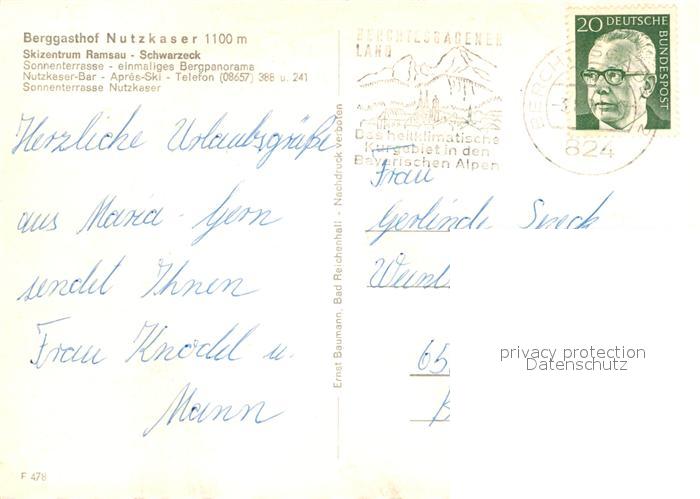 Berggasthof Nutzkaser 1100 m
Skizentrum Ramsau - Schwarzeck
Sonnenterrasse - einmaliges Bergpanorama
Nutzkaser-Bar - Après-Ski - Telefon (08657) 388 u. 241
Sonnenterrasse Nutzkaser
Herzliche Urlaubsgrüße
aus Maria - Gern
sendet Ihnen
Frau Knodel u.
Mann
F 478
Ernst Baumann, Bad Reichenhall - Nachdruck verboten
BERCHTESGADENER
LAND
Das heilklimatische
Kurgebiet in den
Bayerischen Alpen
BERCH
824
20 DEUTSCHE
BUNDESPOST
Frau
Gerlinde
65
privacy protection
Datenschutz